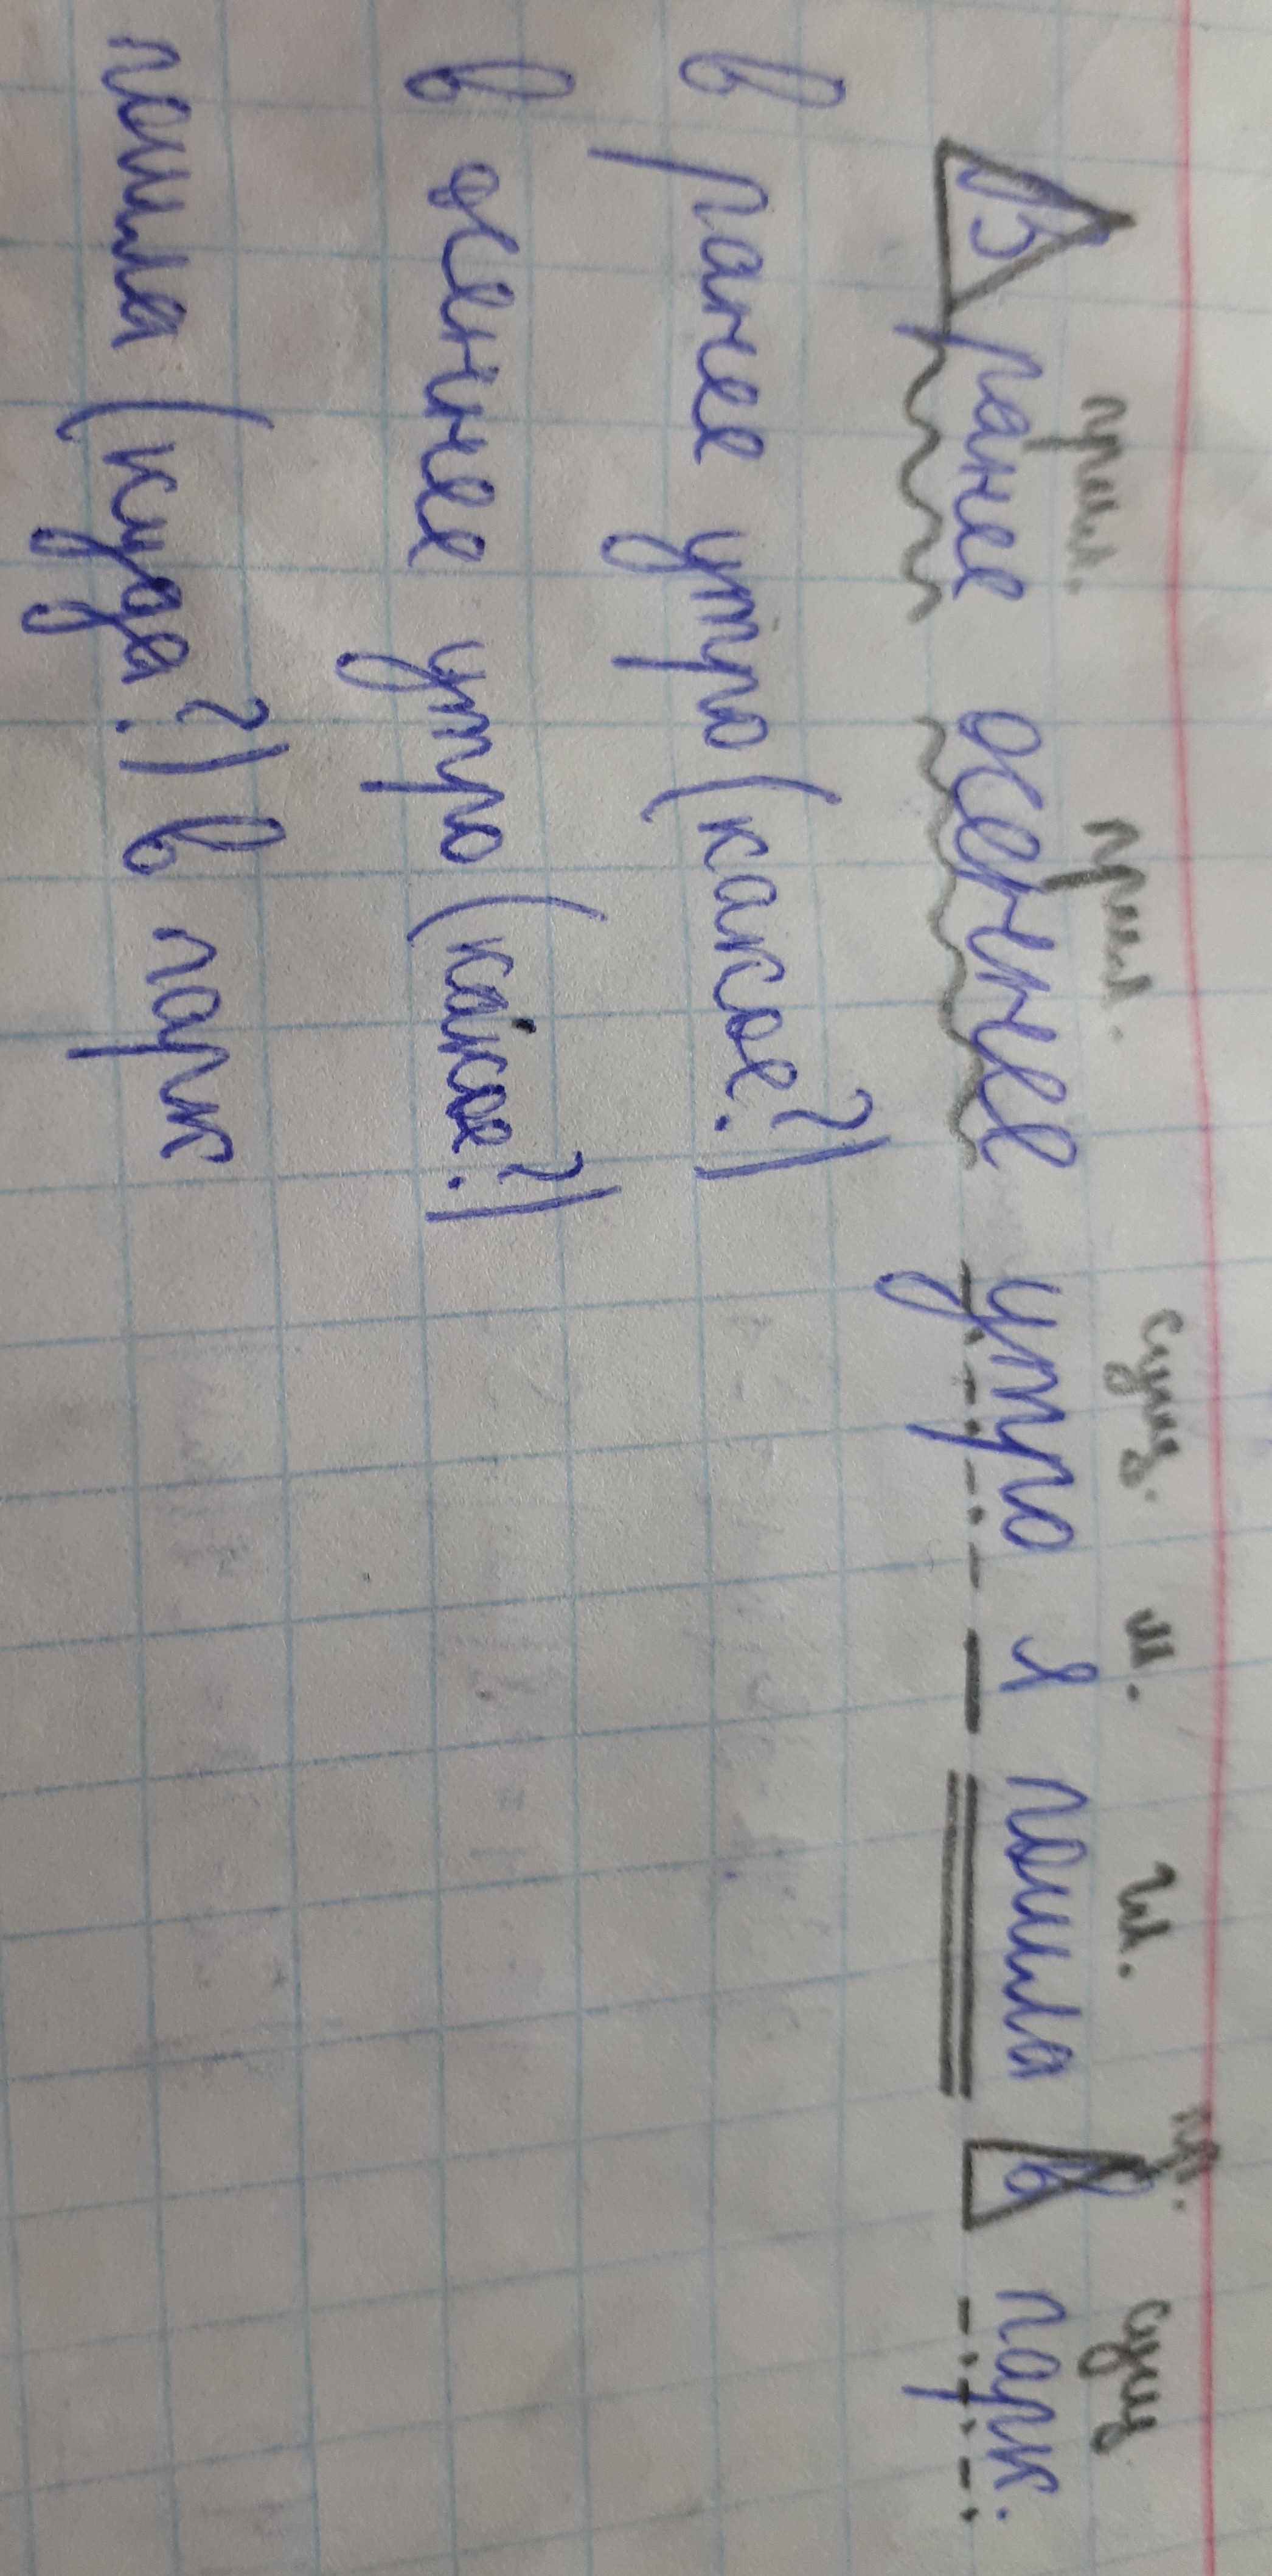 прил. прил. сущ. м. гл. пр. сущ
В ранее осеннее утро я пошла в парк.
в ранее утро (какое?)
в осеннее утро (какое?)
пошла (куда?) в парк